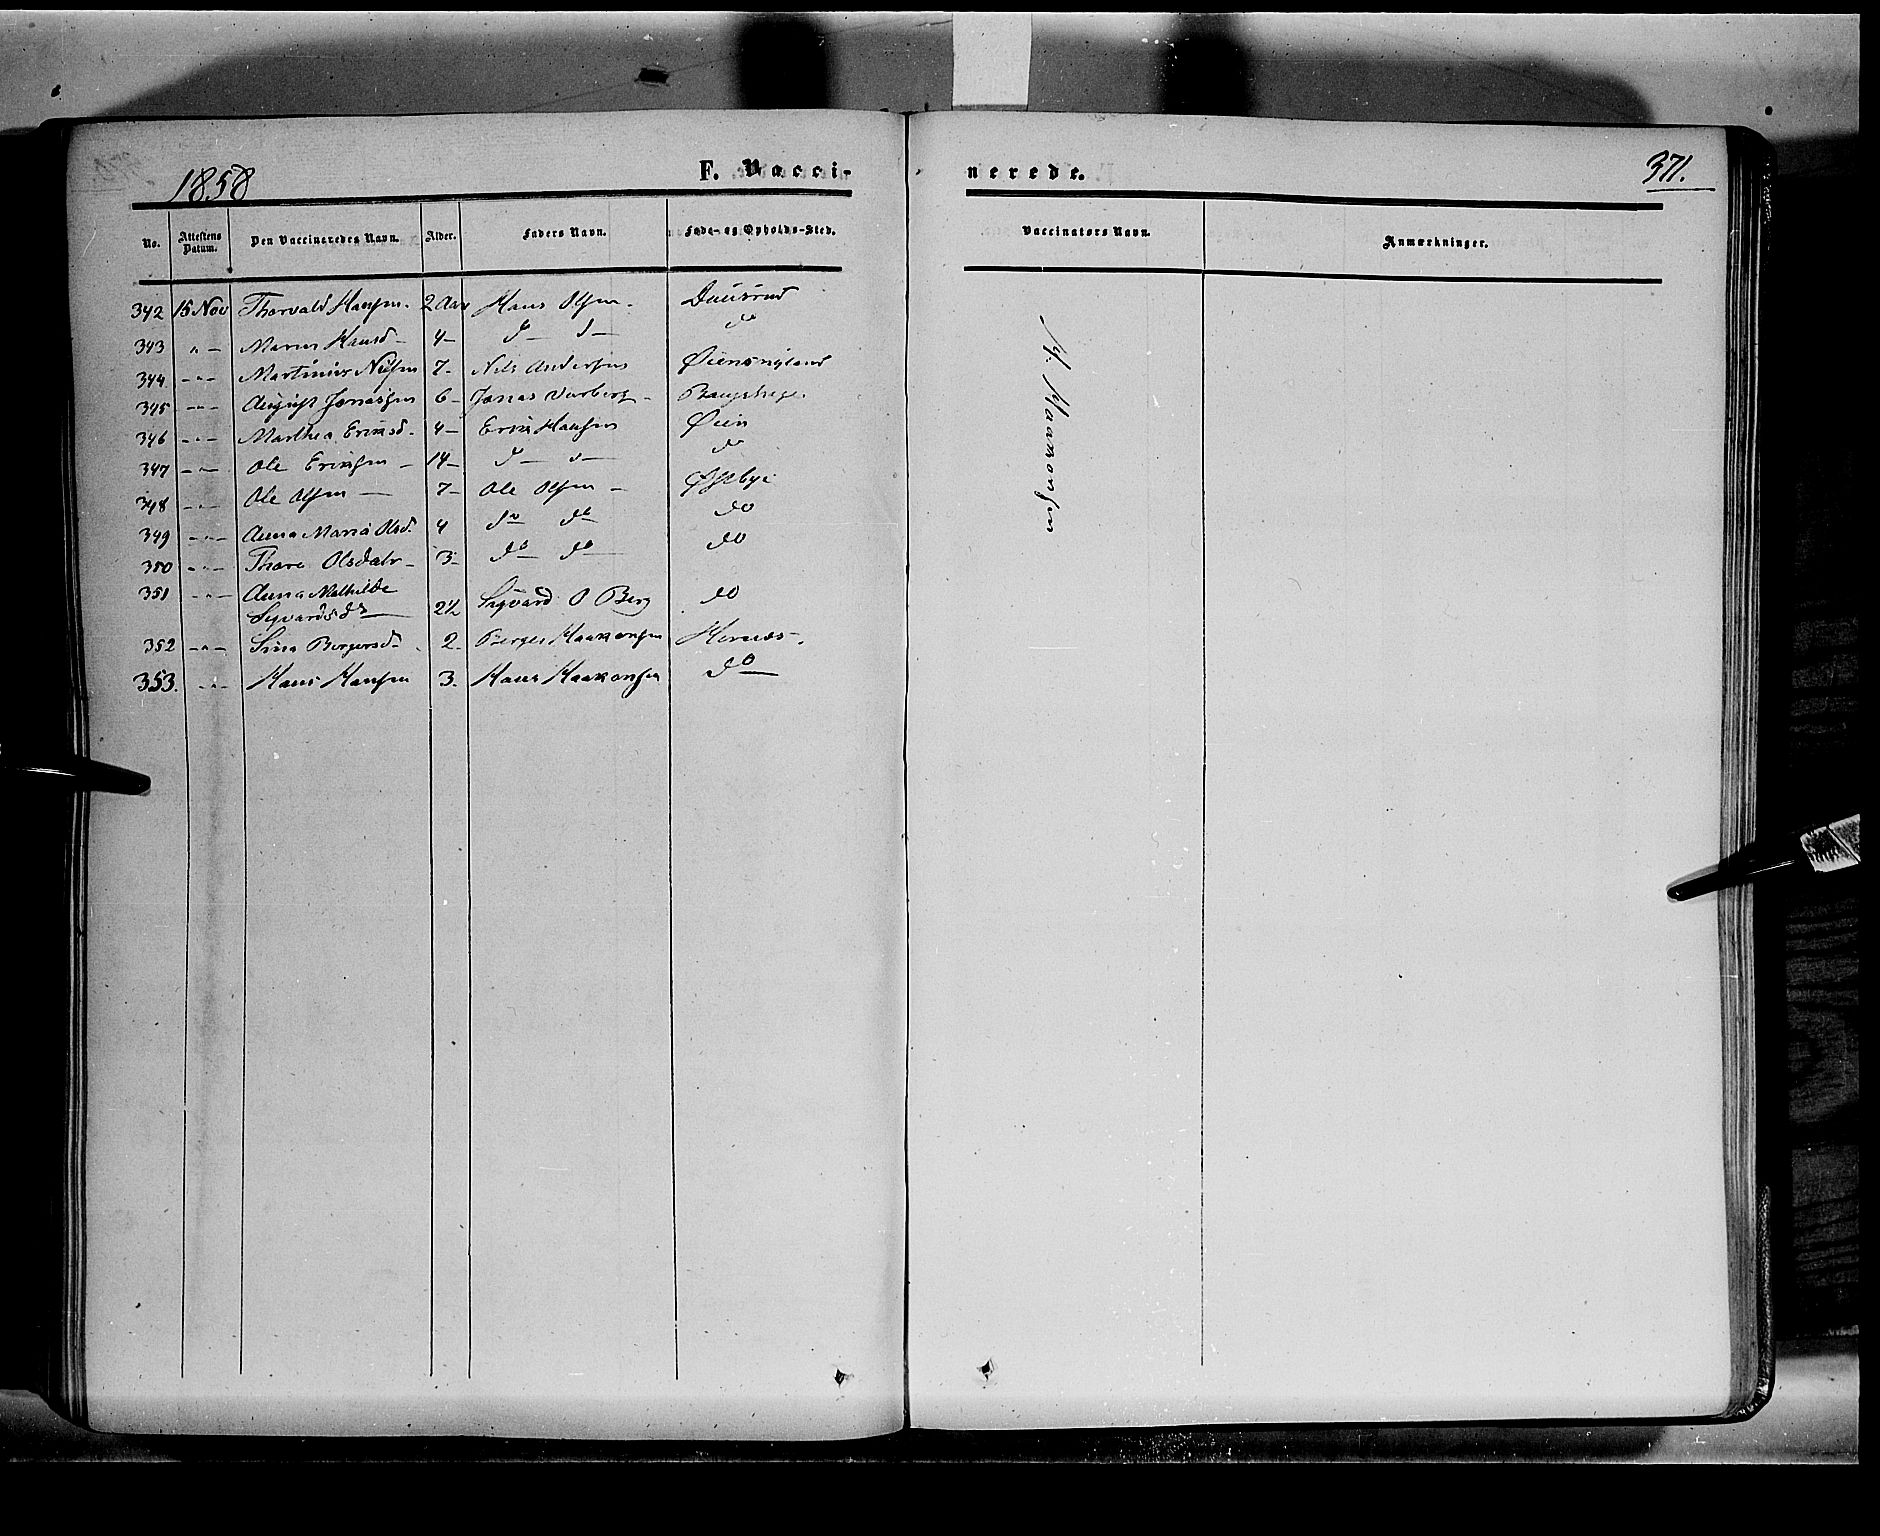 1858
F. Vacci-
nerede.
371.
No. Attestens Datum. Den Vaccineredes Navn. Alder. Faders Navn. Føde- og Opholds-Sted. Vaccinators Navn. Anmærkninger.
342 15 Nov Thorvald Hansen. 2 Aar Hans Olsen.
343 " - Maren Hansd - 4 - d - d - do
344 - " - Martinius Nilsen 7 - Nils Andersen
345 - " - August Jonassen 6 - Jonas
346 - " - Marthea Eriksd - 4 - Erik Hansen Øien
347 - " - Ole Eriksen - 14 - d - d - do
348 - " - Ole Olsen - 7 - Ole Olsen - Østbye
349 - " - Anna Maria Olsd. 4 do do do
350 - " - Thora Olsdatr - 3 - do do do
351 - " - Anna Mathilde
Syvardsdr 2½ Syvard O Berg do
352 - " - Sina Bergersd - 2 - Berger Haakonsen
353. - " - Hans Hansen 3. Hans Haakonsen do
H. Haakonsen